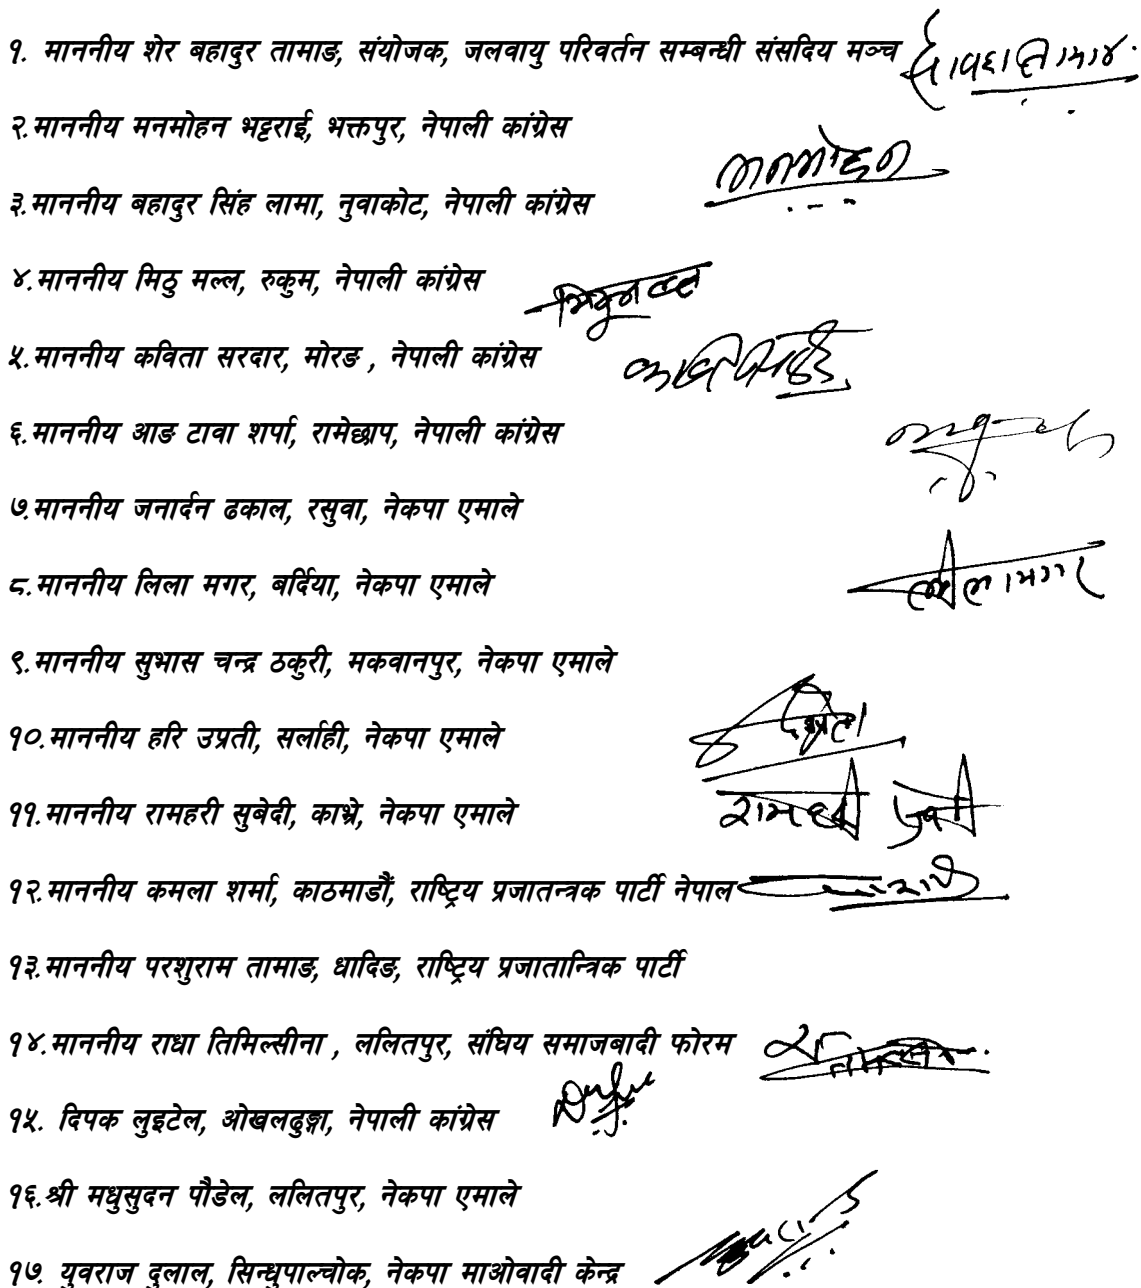 १. माननीय शेर बहादुर तामाङ, संयोजक, जलवायु परिवर्तन सम्बन्धी संसदिय मञ्च
२.माननीय मनमोहन भट्टराई, भक्तपुर, नेपाली कांग्रेस
मनमोहन
३.माननीय बहादुर सिंह लामा, नुवाकोट, नेपाली कांग्रेस
४.माननीय मिठु मल्ल, रुकुम, नेपाली कांग्रेस
५.माननीय कविता सरदार, मोरङ , नेपाली कांग्रेस
६.माननीय आङ टावा शर्पा, रामेछाप, नेपाली कांग्रेस
७.माननीय जनार्दन ढकाल, रसुवा, नेकपा एमाले
८.माननीय लिला मगर, बर्दिया, नेकपा एमाले
लीला मगर
९.माननीय सुभास चन्द्र ठकुरी, मकवानपुर, नेकपा एमाले
१०.माननीय हरि उप्रती, सर्लाही, नेकपा एमाले
११.माननीय रामहरी सुबेदी, काभ्रे, नेकपा एमाले
१२.माननीय कमला शर्मा, काठमाडौं, राष्ट्रिय प्रजातन्त्रक पार्टी नेपाल
१३.माननीय परशुराम तामाङ, धादिङ, राष्ट्रिय प्रजातान्त्रिक पार्टी
१४.माननीय राधा तिमिल्सीना , ललितपुर, संघिय समाजबादी फोरम
१५. दिपक लुइटेल, ओखलढुङ्गा, नेपाली कांग्रेस
१६.श्री मधुसुदन पौडेल, ललितपुर, नेकपा एमाले
१७. युवराज दुलाल, सिन्धुपाल्चोक, नेकपा माओवादी केन्द्र